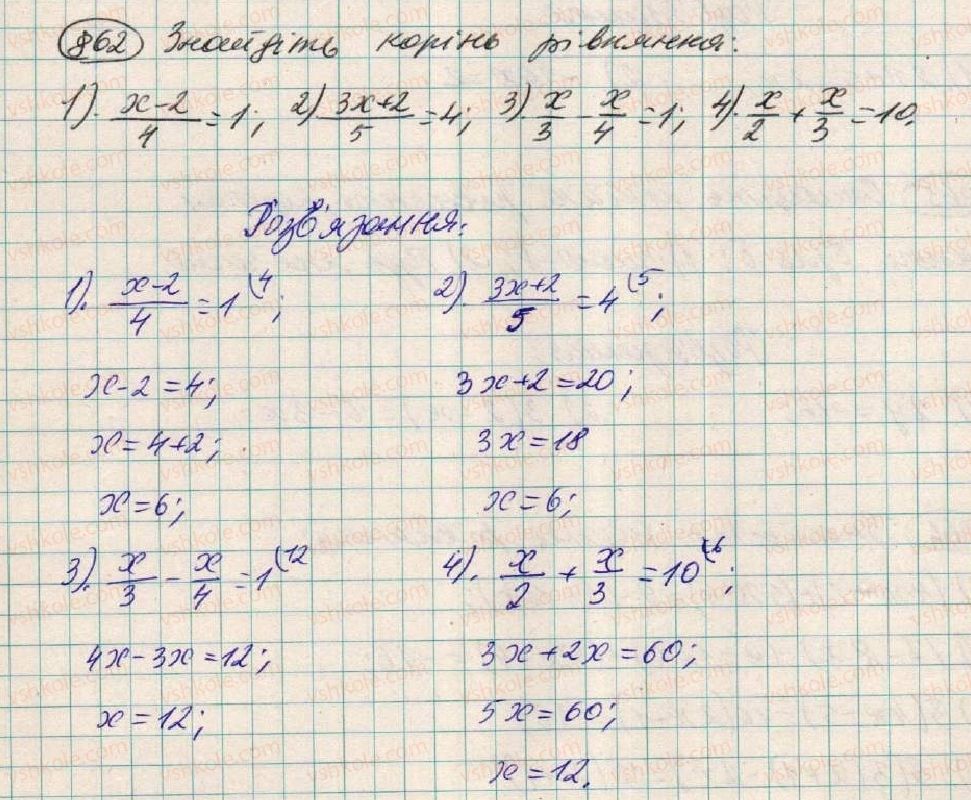 862 Знайдіть корінь рівняння:
1). x-2/4 = 1; 2) 3x+2/5 = 4; 3) x/3 - x/4 = 1; 4) x/2 + x/3 = 10.
Розв'язання:
1). x-2/4 = 1 (4; 2). 3x+2/5 = 4 (5;
x-2 = 4; 3x+2 = 20;
x = 4+2; 3x = 18
x = 6; x = 6;
3). x/3 - x/4 = 1 (12 4). x/2 + x/3 = 10 (6;
4x-3x = 12; 3x+2x = 60;
x = 12; 5x = 60;
x = 12.